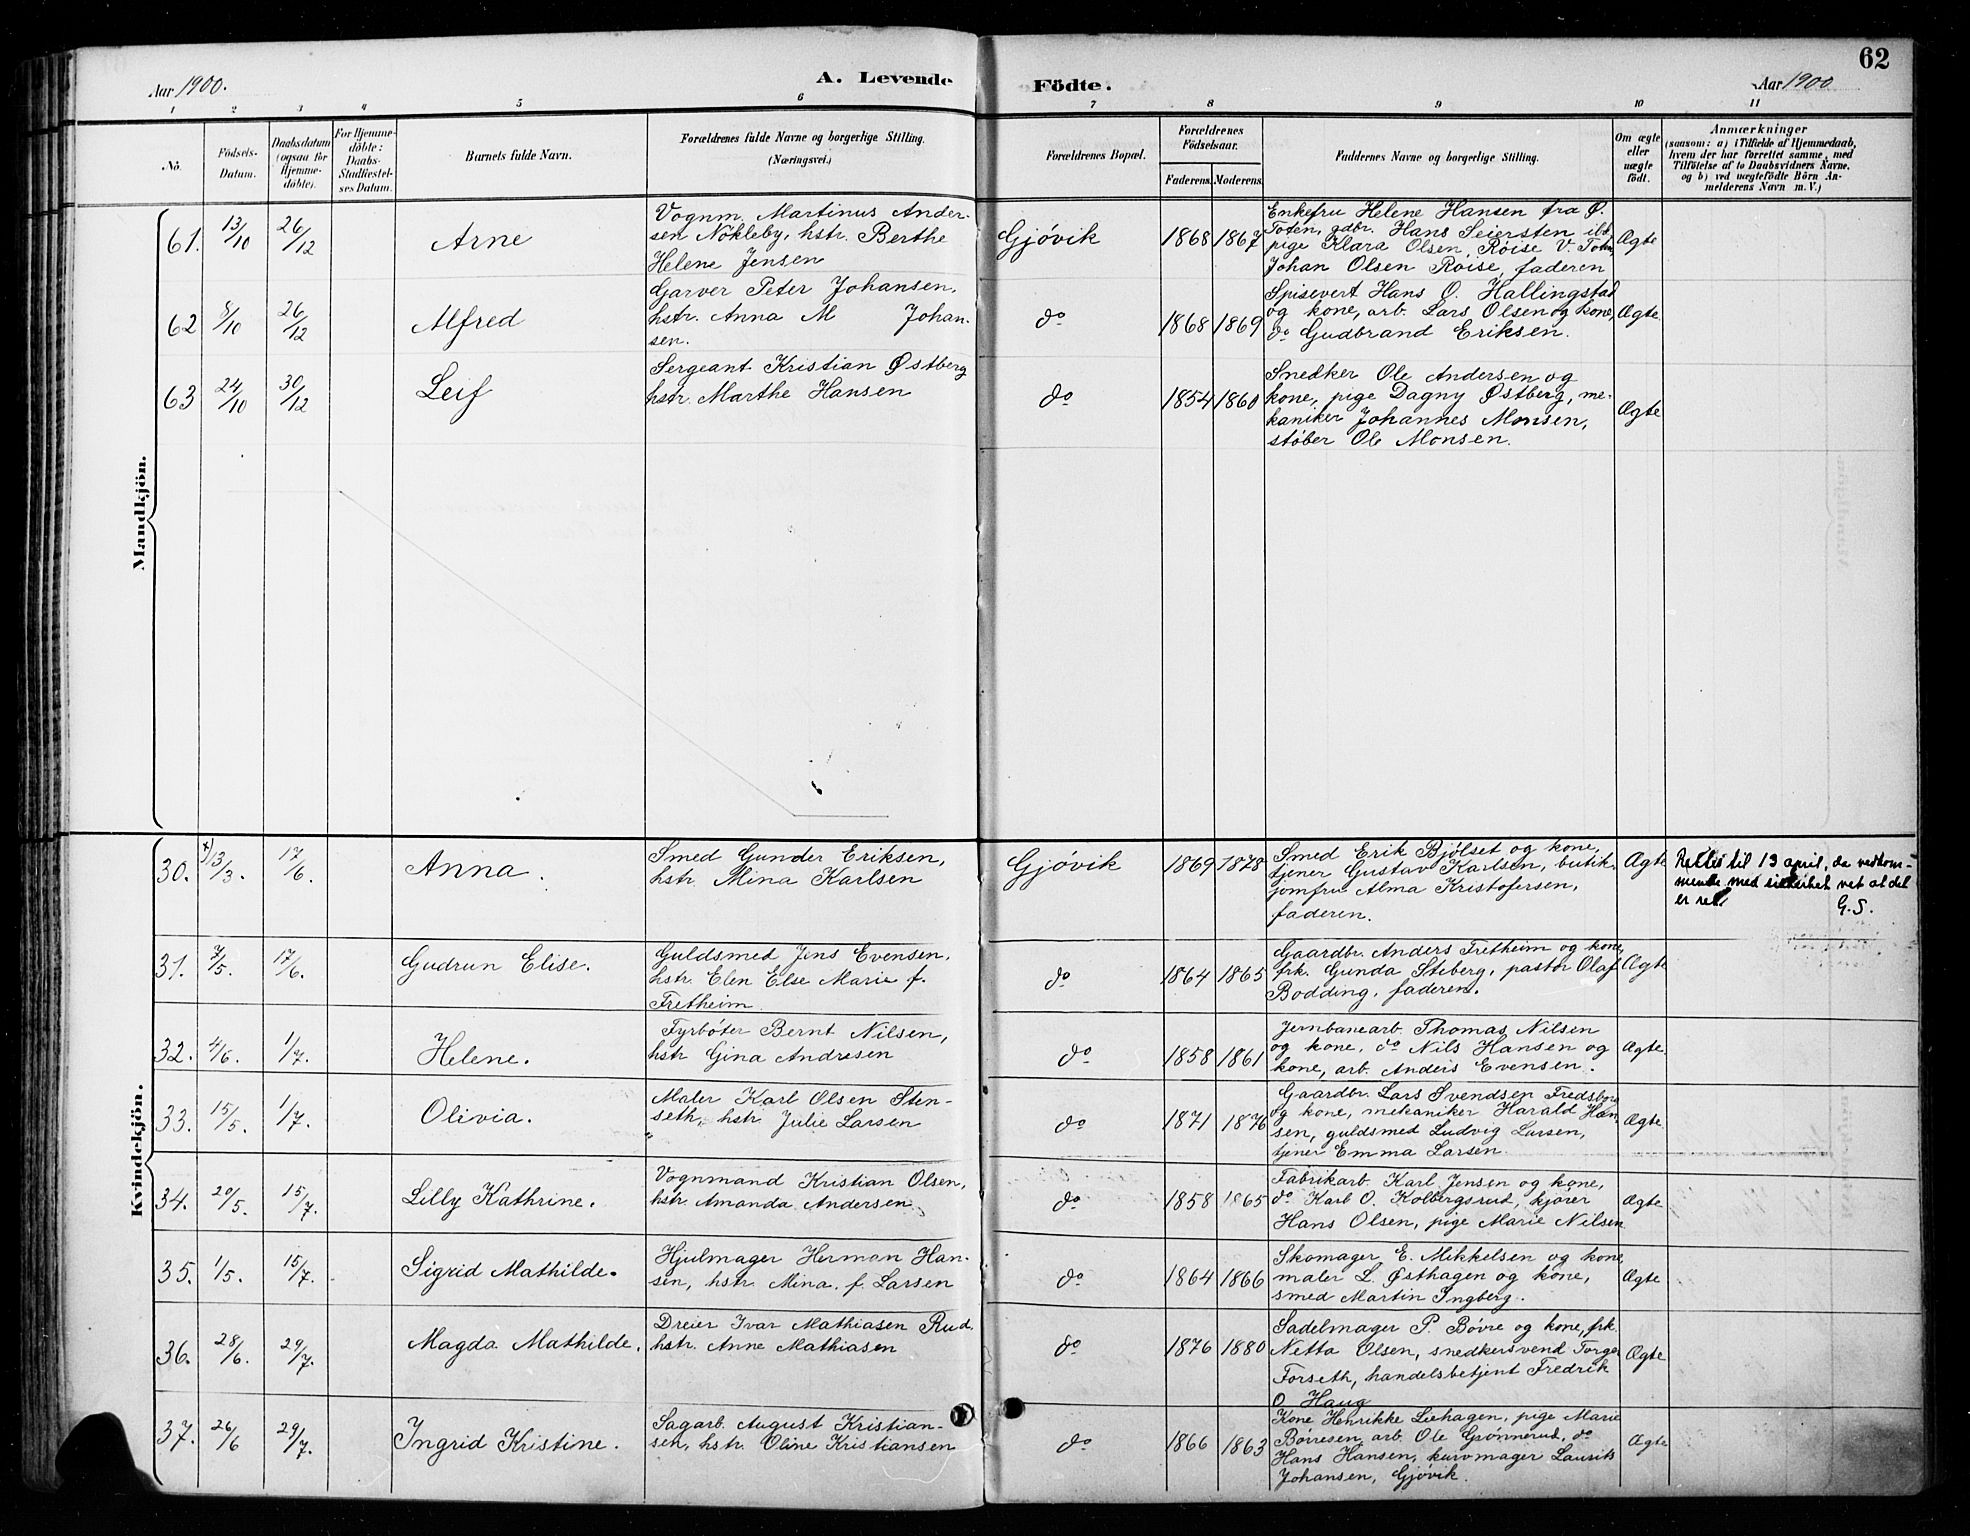 Aar 1900.
A. Levende
Födte.
Aar 1900
62
1 2 3 4 5 6 7 8 9 10 11
No.
Födsels-Datum.
Daabsdatum (ogsaa for Hjemme-döbte).
For Hjemme-döbte: Daabs-Stadfæstel-ses Datum.
Barnets fulde Navn.
Forældrenes fulde Navne og borgerlige Stilling.
(Næringsvei.)
Forældrenes Bopæl.
Forældrenes Födselsaar.
Faderens. Moderens.
Faddernes Navne og borgerlige Stilling.
Om ægte eller uægte födt.
Anmærkninger
(saasom: a) i Tilfælde af Hjemmedaab,
hvem der har forrettet samme, med
Tilföielse af to Daabsvidners Navne,
og b) ved uægtefödte Börn An-
melderens Navn m. V.)
Mandkjön.
61. 13/10 26/12 Arne
Vognm. Martinus Ander-
sen Nökleby, hstr. Berthe
Helene Jensen
Gjövik 1868 1867
Enkefru Helene Hansen fra Ø.
Toten, gdbr. Hans Seiersten ibd,
pige Klara Olsen Röise V. Toten,
Johan Olsen Roise, faderen
Ægte
62 8/10 26/12 Alfred
Garver Peter Johansen,
hstr. Anna M Johan-
sen.
do 1868 1869
Spisevert Hans O. Hallingstad
og kone, arb. Lars Olsen og kone,
do Gudbrand Eriksen.
Ægte.
63 24/10 30/12 Leif
Sergeant Kristian Østberg
hstr. Marthe Hansen
do 1854 1860
Snedker Ole Andersen og
kone, pige Dagny Østberg, me-
kaniker Johannes Monsen,
stöber Ole Monsen.
Ægte
Kvindekjön.
30. x) 13/3. 17/6. Anna.
Smed Gunder Eriksen,
hstr. Mina Karlsen
Gjövik 1869 1878
Smed Erik Bjölset og kone,
tjener Gustav Karlsen, butik-
jomfru Alma Kristofersen,
faderen.
Ægte
Rettes til 13 april, da vedkom-
mende med sikkerhet vet at det
er rett
G.S.
31. 7/5. 17/6. Gudrun Elise.
Guldsmed Jens Evensen,
hstr. Elen Else Marie f.
Fretheim
do 1864 1865
Gaardbr. Anders Fretheim og kone,
frk. Gunda Stiberg, pastor Olaf
Bodding, faderen.
Ægte
32. 4/6. 1/7. Helene.
Fyrböter Bernt Nilsen,
hstr Gina Andresen
do 1858 1861
Jernbanearb. Thomas Nilsen
og kone, do Nils Hansen og
kone, arb. Anders Evensen.
Ægte.
33. 15/5. 1/7. Olivia.
Maler Karl Olsen Sten-
seth, hstr. Julie Larsen
do 1871 1876
Gaardbr. Lars Svendsen Fredsborg
og kone, mekaniker Harald Han-
sen, guldsmed Ludvig Larsen,
tjener Emma Larsen
Ægte.
34. 20/5. 15/7. Lilly Kathrine.
Vognmand Kristian Olsen,
hstr. Amanda Andersen
do 1858 1865
Fabrikarb. Karl Jensen og kone,
do Karl O. Kolbergsrud, kjører
Hans Olsen, pige Marie Nilsen
Ægte
35. 1/5. 15/7. Sigrid Mathilde.
Hjulmager Herman Han-
sen, hstr. Mina f. Larsen
do 1864 1866
Skomager E. Mikkelsen og kone,
maler L. Østhagen og kone,
smed Martin Ingberg.
Ægte
36. 28/6. 29/7. Magda Mathilde.
Dreier Ivar Mathiasen Rud.
hstr. Anne Mathiasen
do 1876 1880
Sadelmager P. Bövre og kone, frk.
Netta Olsen, snedkersvend Torge
Forseth, handelsbetjent Fredrik
O. Haug
Ægte
37. 26/6 29/7. Ingrid Kristine.
Sagarb. August Kristian-
sen, hstr. Oline Kristiansen
do 1866 1863
Kone Henrikke Liehagen, pige Marie
Börresen, arb. Ole Grönnerud, do
Hans Hansen, kurvmager Laurits
Johansen, Gjövik.
Ægte